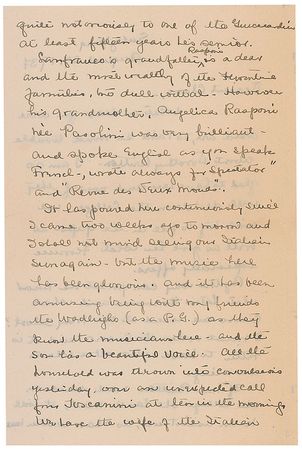 quite notoriously to one of the Guicciardini
at least fifteen years his senior.
Lanfranco's grandfather, Rasponi is a dear
and the most wealthy of the Florentine
families, but dull withal - However
his grandmother, Angelica Rasponi
née Pasolini was very brilliant -
and spoke English as you speak
French -, wrote always for "Spectator"
and "Revue des Deux Mondes".
It has poured here continuously since
I came two weeks ago to-morrow and
I shall not mind seeing our Italian
sun again - but the music here
has been glorious. And it has been
amusing being with my friends
the Wadleighs (as a P.G.) as they
know the musicians here - and the
son has a beautiful voice. All the
household was thrown into convulsions
yesterday, over an unexpected call
from Toscanini at ten in the morning.
We have the wife of the Italian